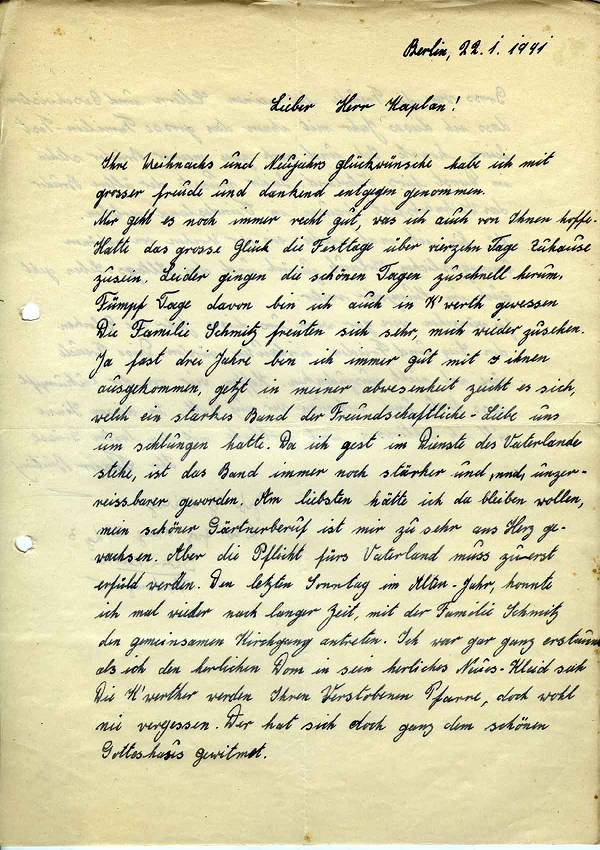 Berlin, 22. 1. 1941
Lieber Herr Kaplan!
Ihre Weihnachs und Neujahrs glückwünsche habe ich mit
grosser freude und dankend entgegen genommen.
Mir geht es noch immer recht gut, was ich auch von Ihnen hoffe.
Hatte das grosse Glück die Festtage über vierzehn Tage Zuhause
zusein. Leider gingen die schönen Tagen zuschnell herum.
Fümpf Tage davon bin ich auch in K'werth gewessen
Die Familie Schmitz freuten sich sehr, mich wieder zusehen.
Ja fast drei Jahre bin ich immer gut mit ihnen
ausgekommen, jetzt in meiner abwesenheit zeicht es sich,
welch ein starkes Band der Freundschaftliche-Liebe uns
um schlungen hatte. Da ich jest im Dienste des Vaterlande
stehe, ist das Band immer noch stärker und, und, unzer-
reissbarer geworden. Am liebsten hätte ich da bleiben wollen,
mein schöner Gärtnerberuf ist mir zu sehr ans Herz ge-
wachsen. Aber die Pflicht fürs Vaterland muss zu-erst
erfüld werden. Den letzten Sonntag im Alten-Jahr, konnte
ich mal wieder nach langer Zeit, mit der Familie Schmitz
den gemeinsamen Kirchgang antreten. Ich war gar ganz erstaun
als ich den herlichen Dom in sein herliches Neues-Kleid sah
Die K'werther werden Ihren Verstorbenen Pfarre, doch wohl
nie vergessen. Der hat sich doch ganz dem schönen
Gotteshaus gewitmet.